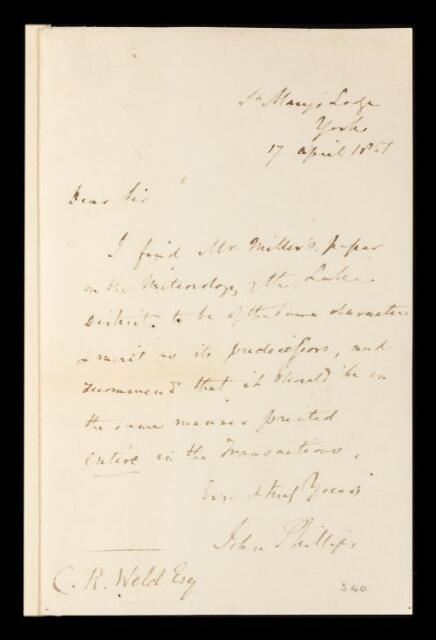 St Mary's Lodge
York
17 April 1851
Dear Sir
I find Mr. Miller's paper
on the Meteorology of the Lake
District to be of the same character
& merit as its predecessors, and
recommend that it should be in
the same manner printed
entire in the Transactions.
Ever truly Yours
John Phillips
C. R. Weld Esq
340